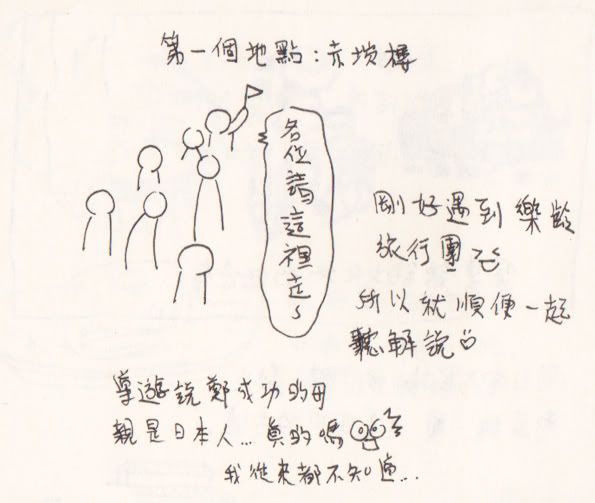 第一個地點:赤崁樓
各位請這裡走~
剛好遇到樂齡
旅行團
所以就順便一起
聽解說
導遊說鄭成功的母
親是日本人...真的嗎
我從來都不知道...